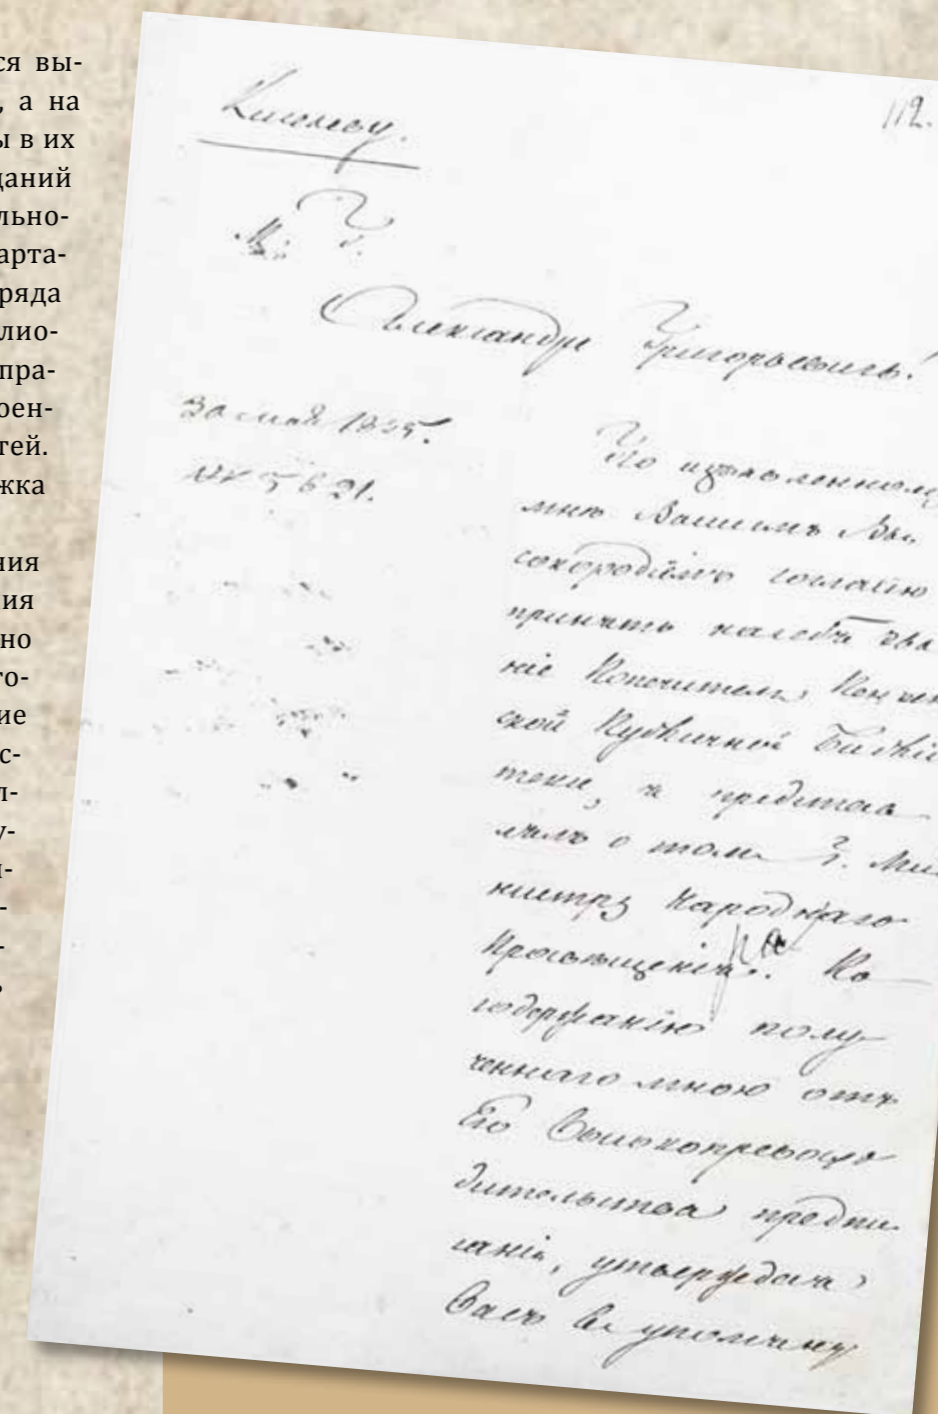 ся вы-
, а на
ы в их
даний
льно-
арта-
ряда
лио-
пра-
оен-
тей.
жка
ния
ия
но
го-
ие
с-
л-
у-
и-
-
-
ь
Киселеву.
112.
М. Г.
Александръ Григорьевичъ!
30 мая 1845.
№ 5621.
По изъявленному
мнѣ Вашимъ Вы
сокородіемъ согласію
принять на себя зва
ніе Попечителя Пензен
ской Публичной Библіо
теки, я представ
лялъ о томъ Г. Ми
нистру Народнаго
Просвѣщенія. По
содержанію полу
ченнаго мною отъ
Его Высокопревосхо
дительства предпи
санія, утверждая
Васъ въ упомяну